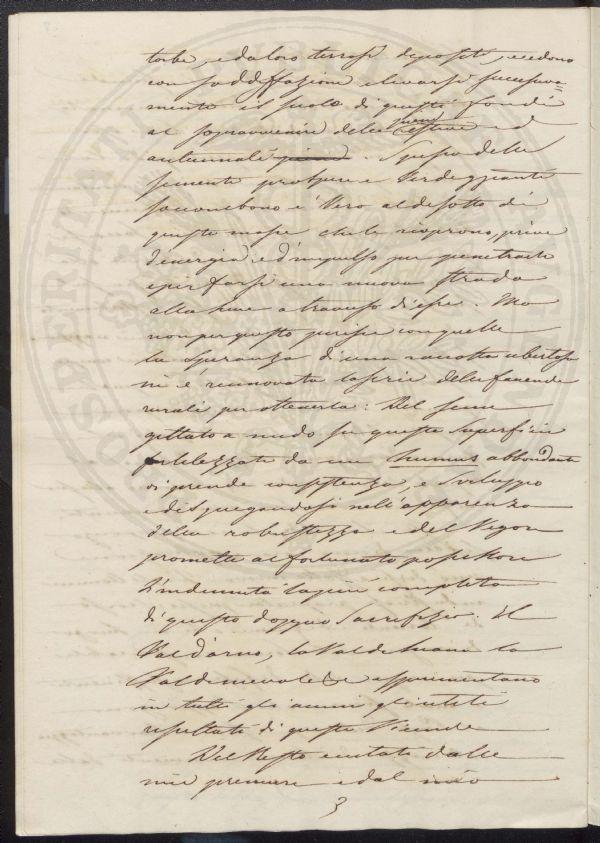 torbe, e da loro terrosi depositi, vedono
con soddisfazione elevarsi successiva=
mente il suolo di questi fondi
al sopravvenire delle piene estive ed
autunnali. Spesso delle
sementi prospere e verdeggianti
soccombono è vero al disotto di
queste masse che le ricoprono, prive
d'energia, e d'impulso per penetrarle
e per farsi una nuova strada
alla luce a traverso di esse. Ma
non per questo perisce con quelle
la speranza di una raccolta ubertosa
nè è rinnovata la serie delle faccende
rurali per ottenerla: Del seme
gittato a nudo su questa superficie
fertilizzata da un humus abbondante
vi prende consistenza, e sviluppo
e dispiegandosi nell'apparenza
della robustezza e del vigore
promette al fortunato possessore
l'indennità la più completa
di questo doppio sacrifizio. Il
Valdarno, la Valdichiana la
Valdinievole & esperimentano
in tutti gli anni gli utili
resultati di queste vicende
Del resto invitato dalle
mie premure e dal mio
3